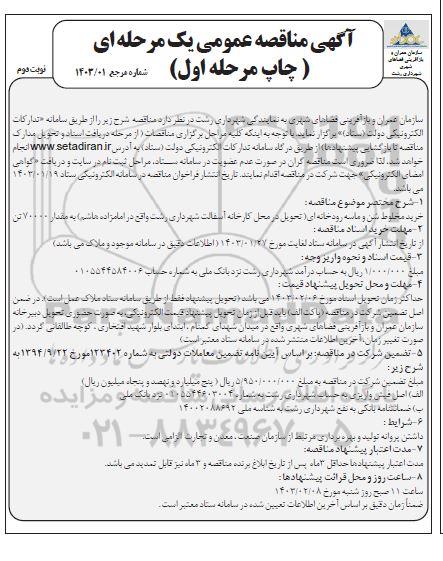 سازمان عمران و
بازآفرینی فضاهای
شهری
شهرداری رشت
آگهی مناقصه عمومی یک مرحله ای
( چاپ مرحله اول)
شماره مرجع ۱۴۰۳/۰۱
نوبت دوم
سازمان عمران و بازآفرینی فضاهای شهری به نمایندگی شهرداری رشت در نظر دارد مناقصه شرح زیر را از طریق سامانه «تدارکات
الکترونیکی دولت (ستاد)» برگزار نماید. با توجه به اینکه کلیه مراحل برگزاری مناقصات ( از مرحله دریافت اسناد و تحویل مدارک
مناقصه تا بازگشایی پیشنهادها) از طریق درگاه سامانه تدارکات الکترونیکی دولت (ستاد) به آدرس www.setadiran.ir انجام
خواهد شد، لذا ضروری است مناقصه گران در صورت عدم عضویت در سامانه ستاد، مراحل ثبت نام در سایت و دریافت «گواهی
امضای الکترونیکی» جهت شرکت در مناقصه اقدام نمایند. تاریخ انتشار فراخوان مناقصه در سامانه الکترونیکی ستاد ۱۴۰۳/۰۱/۱۹
می باشد.
۱-شرح مختصر موضوع مناقصه:
خرید مخلوط شن و ماسه رودخانه ای ( تحویل در محل کارخانه آسفالت شهرداری رشت واقع در امامزاده هاشم) به مقدار ۷۰۰۰۰ تن
۲-مهلت خرید اسناد مناقصه:
از تاریخ انتشار آگهی در سامانه ستاد لغایت مورخ ۱۴۰۳/۰۱/۲۷ ( اطلاعات دقیق در سامانه موجود و ملاک می باشد)
۳-قیمت اسناد و نحوه واریز وجه:
مبلغ ۱/۰۰۰/۰۰۰ ریال به حساب درآمد شهرداری رشت نزد بانک ملی به شماره حساب ۰۱۰۵۵۴۴۵۸۴۰۰۶
۴-مهلت و محل تحویل پیشنهاد قیمت:
حداکثر زمان تحویل اسناد مورخ ۱۴۰۳/۰۲/۰۶ می باشد (تحویل پیشنهاد فقط از طریق سامانه ستاد ملاک عمل است)، در ضمن
اصل تضمین شرکت در مناقصه (پاکت الف) باید قبل از زمان تحویل پیشنهاد قیمت الکترونیکی به صورت حضوری تحویل دبیرخانه
سازمان عمران و بازآفرینی فضاهای شهری واقع در میدان شهدای گمنام ، ابتدای بلوار شهید افتخاری ، کوچه طالقانی گردد. (در
صورت تغییر زمان، آخرین اطلاعات منتشر شده در سامانه ستاد معتبر است)
۵-تضمین شرکت در مناقصه: بر اساس آیین نامه تضمین معاملات دولتی به شماره ۱۲۳۴۰۲مورخ ۱۳۹۴/۹/۲۲ به
شرح زیر:
مبلغ تضمین شرکت در مناقصه به مبلغ ۵/۹۵۰/۰۰۰/۰۰۰ ریال ( پنج میلیارد و نهصد و پنجاه میلیون ریال)
الف) اصل فیش واریزی به حساب شهرداری رشت به شماره ۰۱۰۵۵۴۴۶۰۳۰۰۴ نزد بانک ملی
ب) ضمانتنامه بانکی به نفع شهرداری رشت به شناسه ملی ۱۴۰۰۲۰۸۸۶۹۲
۶-شرایط :
داشتن پروانه تولید و بهره برداری مرتبط از سازمان صنعت ، معدن و تجارت الزامی است.
۷-مدت اعتبار پیشنهاد مناقصه:
مدت اعتبار پیشنهادها حداقل ۳ماه پس از تاریخ ابلاغ برنده مناقصه و ۳ ماه نیز قابل تمدید می باشد.
۸-ساعت روز و محل قرائت پیشنهادها :
ساعت ۱۱ صبح روز شنبه مورخ ۱۴۰۳/۰۲/۰۸
ضمناً زمان دقیق بر اساس آخرین اطلاعات تعیین شده در سامانه ستاد معتبر است.
۰۲۱-۸۸۳۴۹۶۷۰-۵